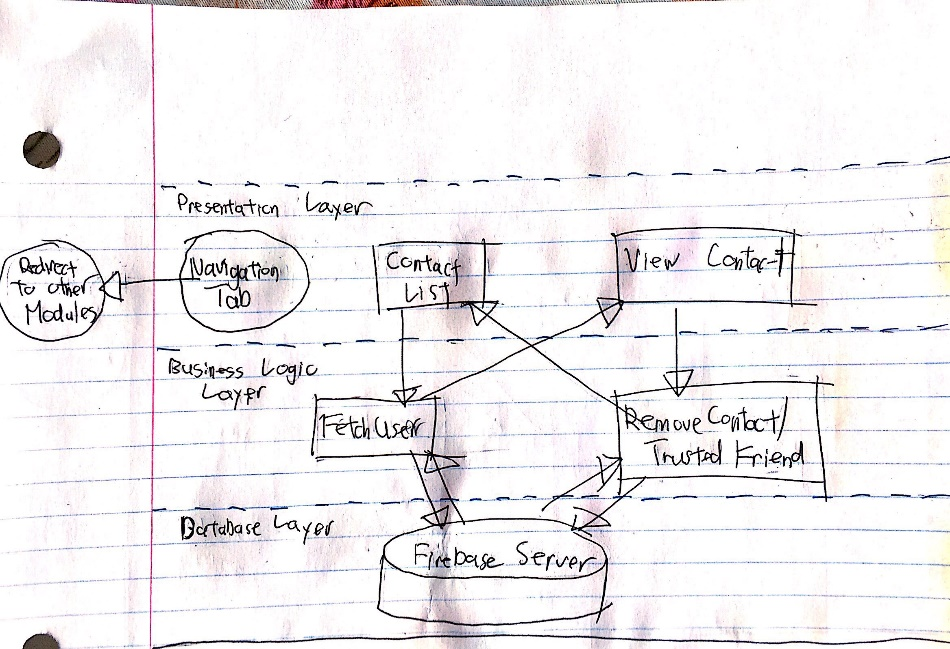 Presentation Layer
Redirect
to other
Modules
Navigation
Tab
Contact
List
View Contact
Business Logic
Layer
Fetch User
Remove Contact/
Trusted Friend
Database Layer
Firebase Server